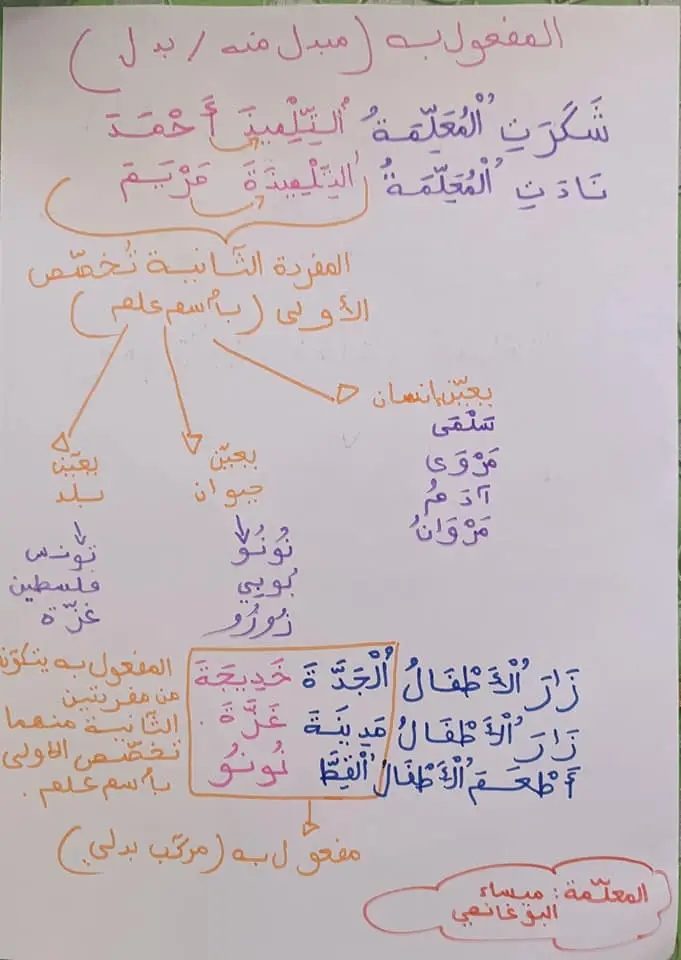 المفعول به (مبدل منه / بدل)
شَكَرَتِ الْمُعَلِّمَةُ التِّلْمِيذَ أَحْمَدَ
نَادَتِ الْمُعَلِّمَةُ التِّلْمِيذَةَ مَرْيَمَ
المفردة الثّانية تُخصّص
الأولى (بٱسم علم)
يعيّن إنسان
سَلْمَى
مَرْوَى
آدَمُ
مَرْوَانُ
يعيّن
حيوان
نُونُو
بُوبِي
زُوزُو
يعيّن
بلد
تونس
فلسطين
غزّة
زَارَ الْأَطْفَالُ الْجَدَّةَ خَدِيجَةَ
زَارَ الْأَطْفَالُ مَدِينَةَ غَزَّةَ.
أَطْعَمَ الْأَطْفَالُ الْقِطَّ نُونُو
المفعول به يتكوّن
من مفردتين
الثّانية منهما
تخصّص الأولى
بٱسم علم.
مفعول به (مركّب بدلي)
المعلّمة: ميساء
البوغانمي